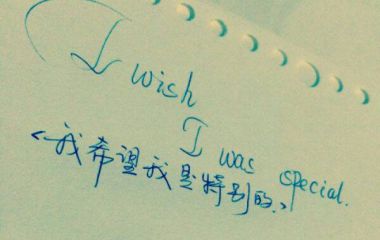 I wish
I was special.
<我希望我是特别的.>